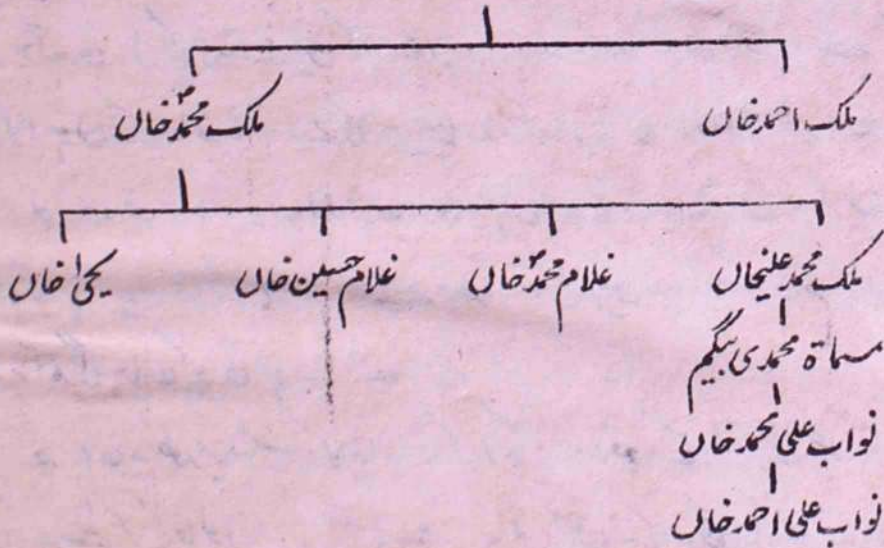 ملک احمد خاں ملک محمدؐ خاں
ملک محمد علیخاں غلام محمدؐ خاں غلام حسین خاں یحیٰ خاں
مسماۃ محمدی بیگم
نواب علی محمد خاں
نواب علی احمد خاں